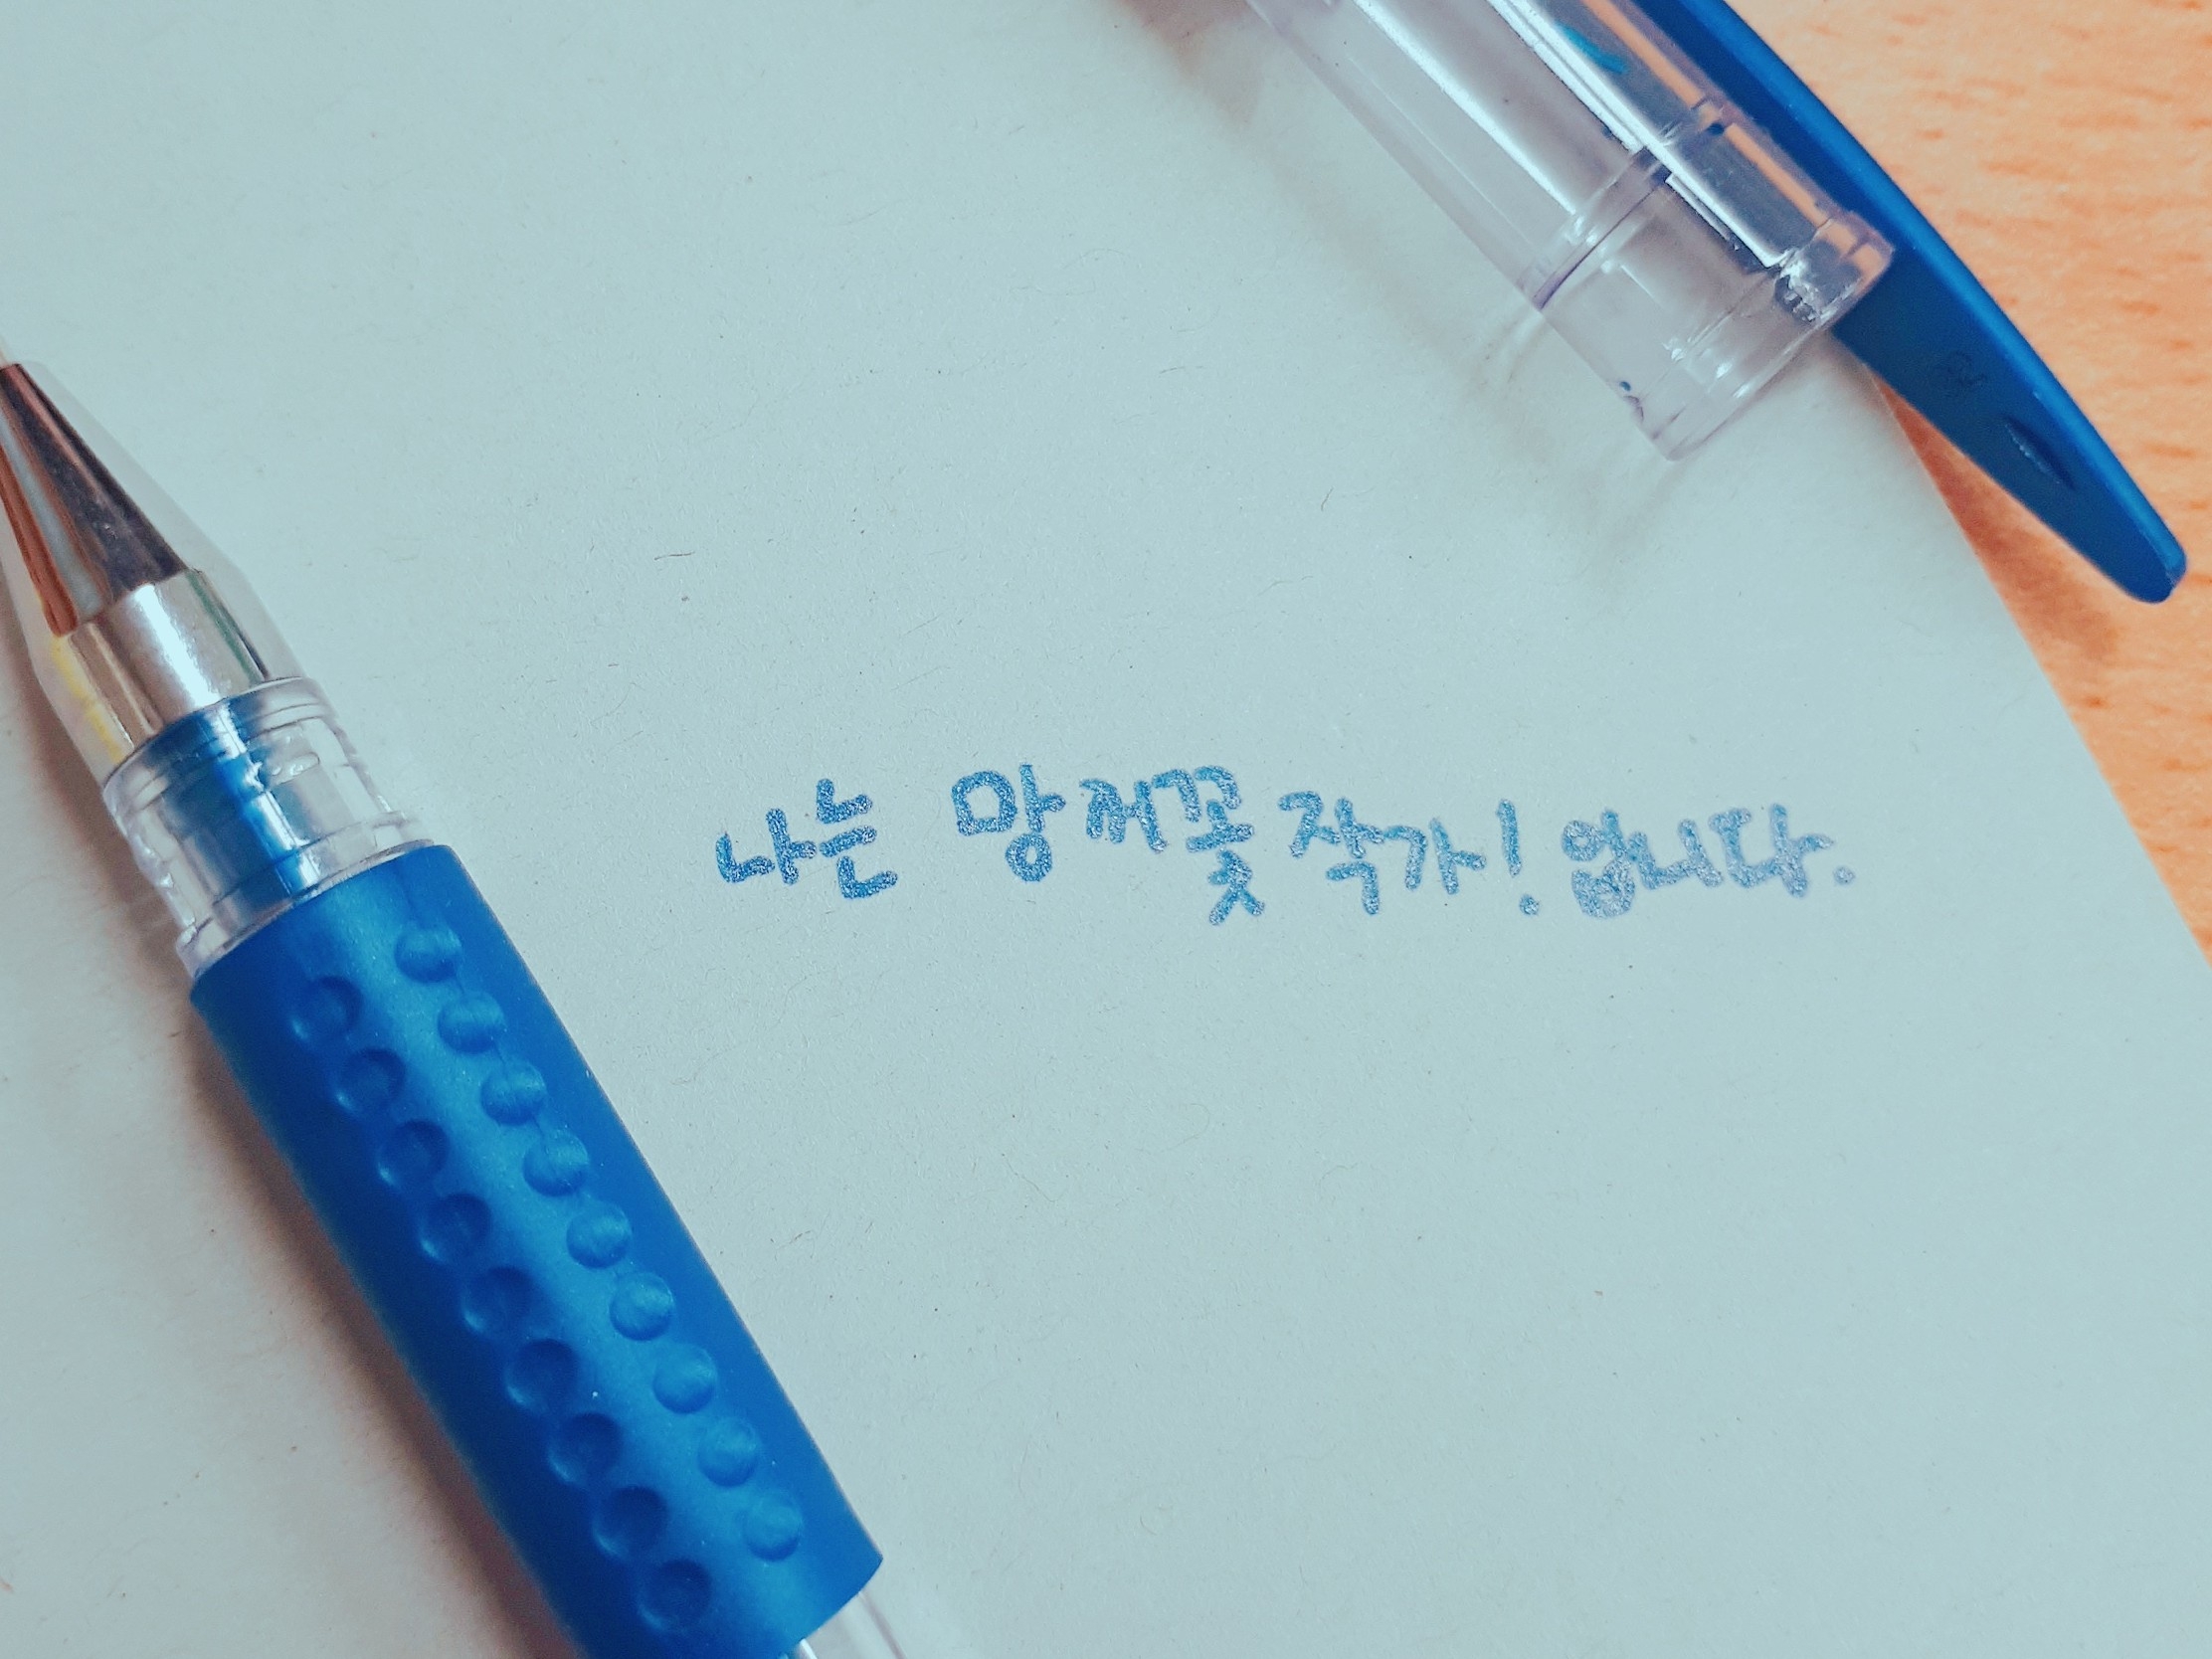 나는 망께꽃 작가! 입니다.